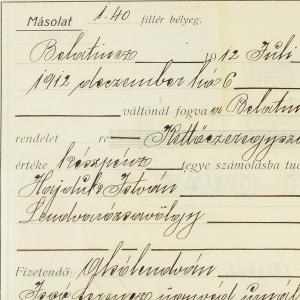 Másolat 1.40 fillér bélyeg.
Belatincz 1912 Juli
1912 deczember hó 6
váltónál fogva a Belatin
rendelet re Kettőezeregysz
értéke készpénz tegye számolásba tud
Hajduk István
Lendvarózsavölgy
Fizetendő Alsólendván